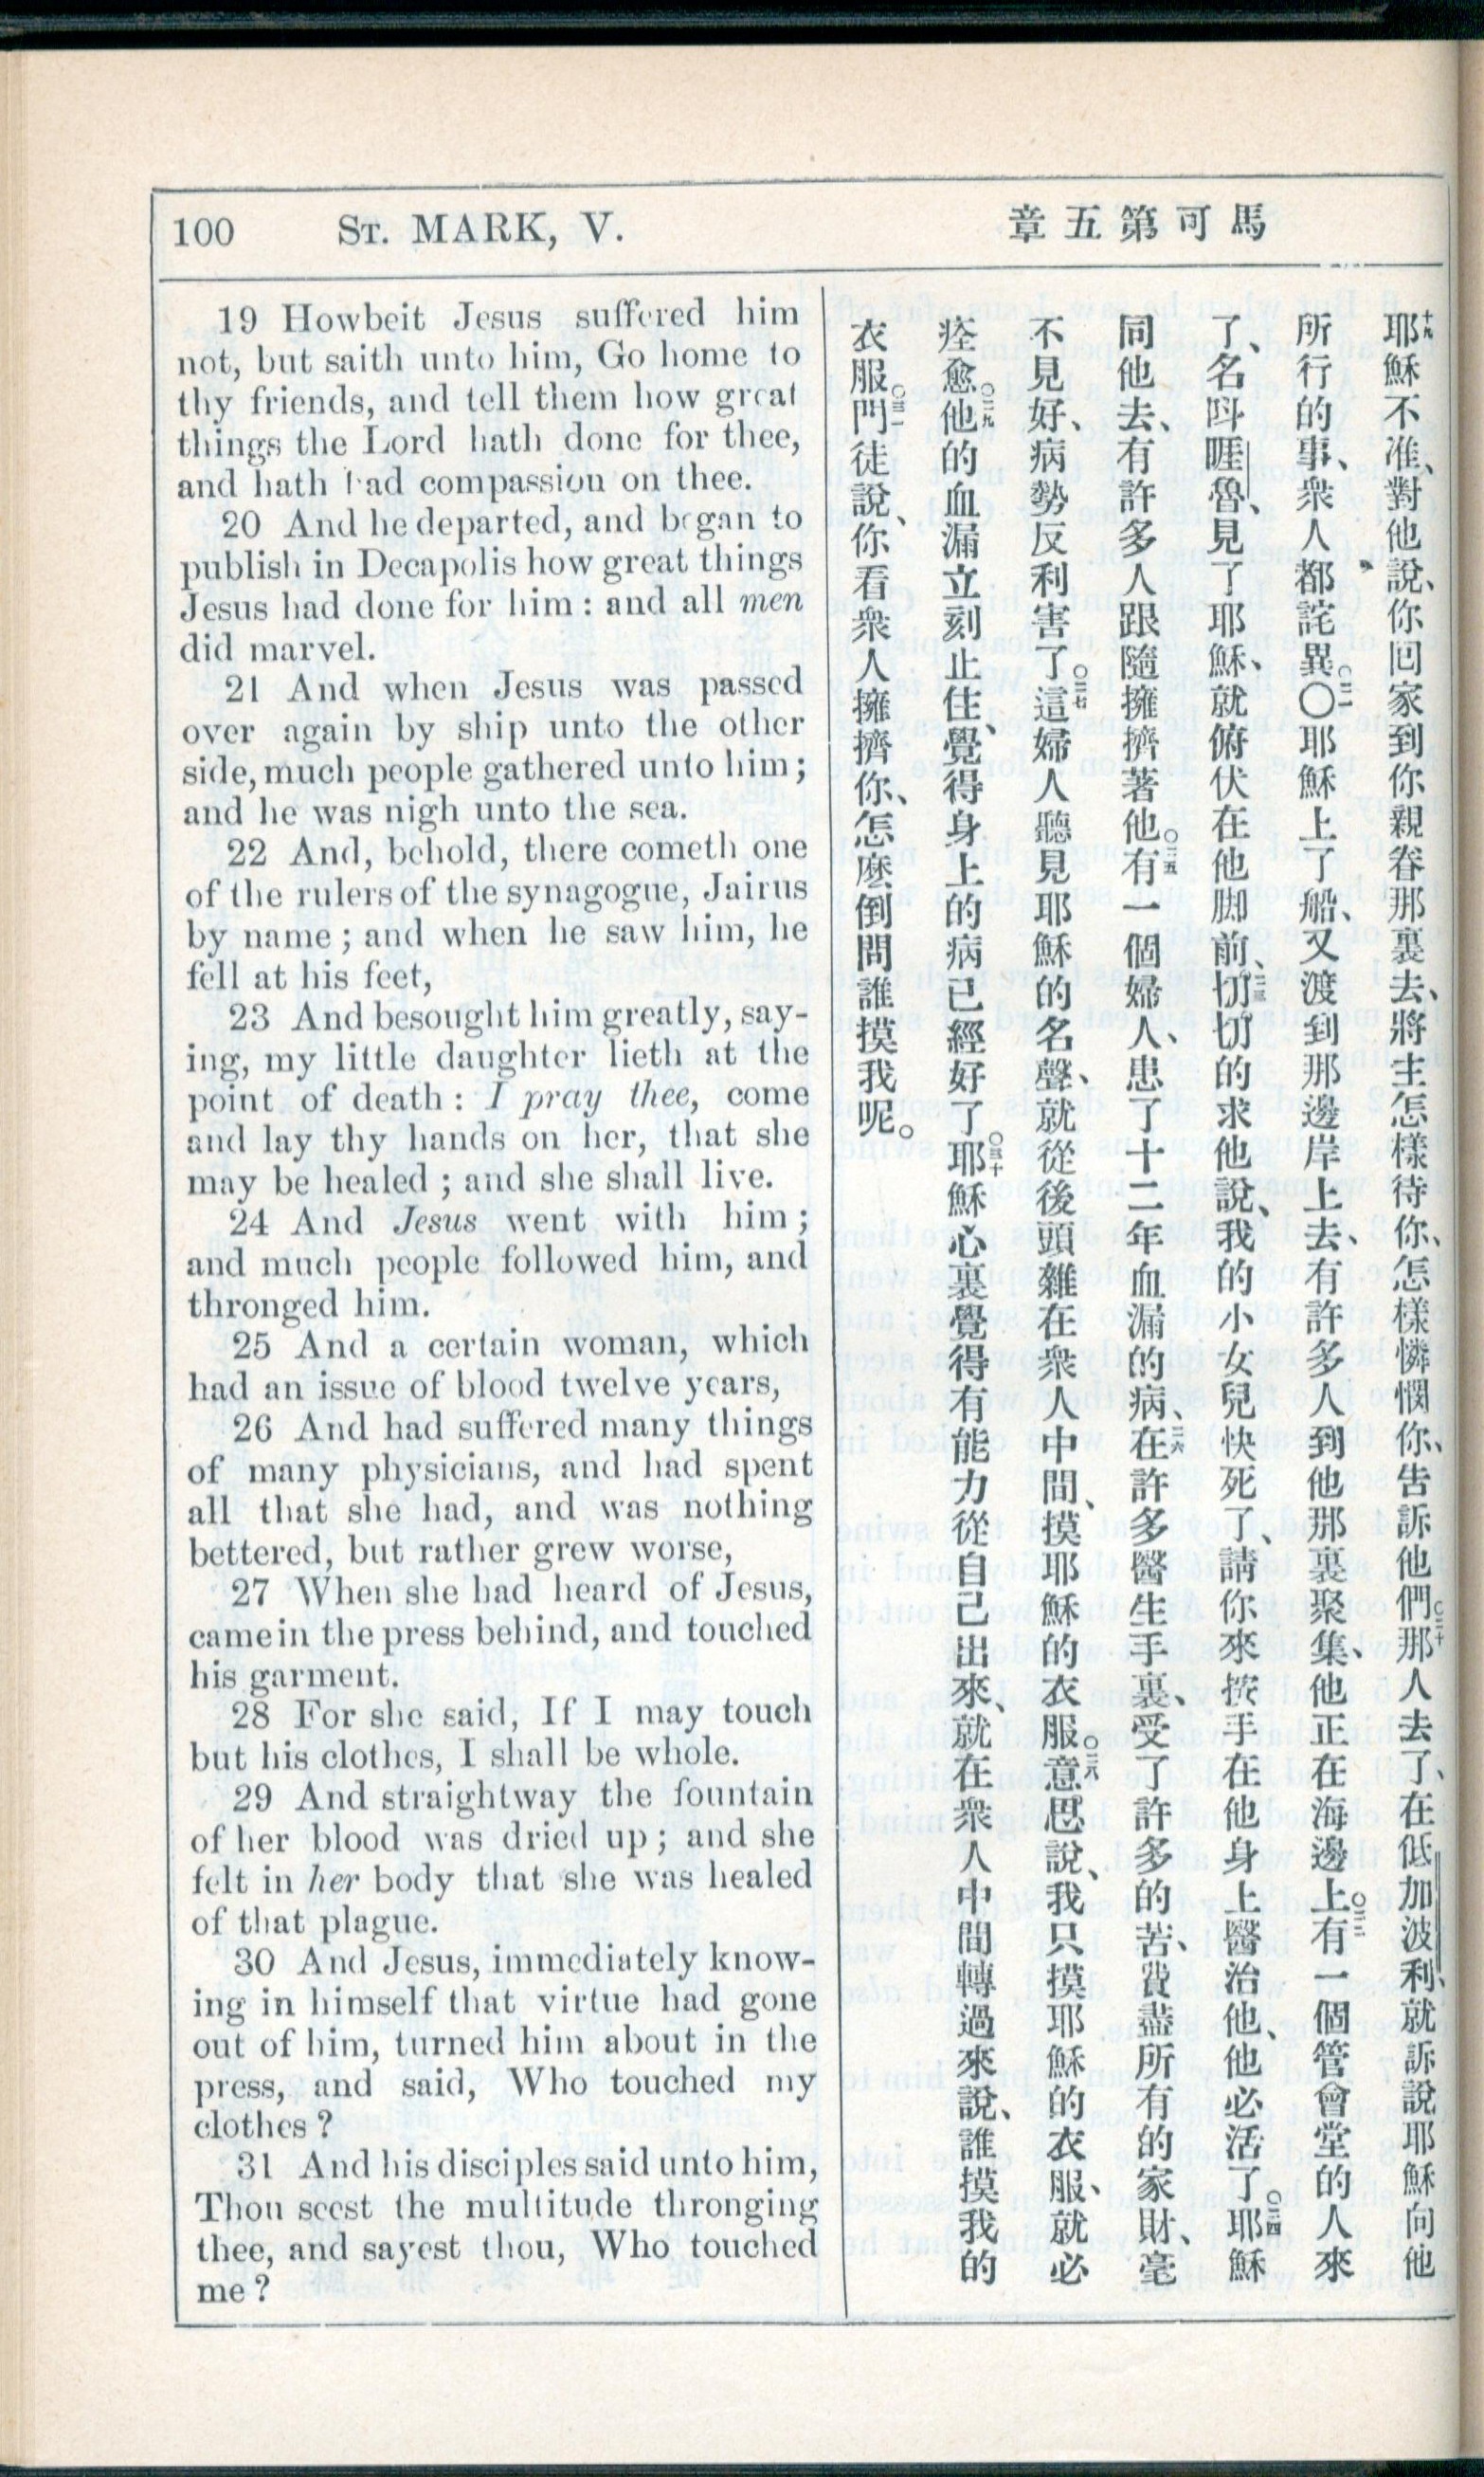 100 ST. MARK, V.
馬可第五章
19 Howbeit Jesus suffered him
not, but saith unto him, Go home to
thy friends, and tell them how great
things the Lord hath done for thee,
and hath had compassion on thee.
20 And he departed, and began to
publish in Decapolis how great things
Jesus had done for him: and all men
did marvel.
21 And when Jesus was passed
over again by ship unto the other
side, much people gathered unto him;
and he was nigh unto the sea.
22 And, behold, there cometh one
of the rulers of the synagogue, Jairus
by name; and when he saw him, he
fell at his feet,
23 And besought him greatly, say-
ing, my little daughter lieth at the
point of death: I pray thee, come
and lay thy hands on her, that she
may be healed; and she shall live.
24 And Jesus went with him;
and much people followed him, and
thronged him.
25 And a certain woman, which
had an issue of blood twelve years,
26 And had suffered many things
of many physicians, and had spent
all that she had, and was nothing
bettered, but rather grew worse,
27 When she had heard of Jesus,
came in the press behind, and touched
his garment.
28 For she said, If I may touch
but his clothes, I shall be whole.
29 And straightway the fountain
of her blood was dried up; and she
felt in her body that she was healed
of that plague.
30 And Jesus, immediately know-
ing in himself that virtue had gone
out of him, turned him about in the
press, and said, Who touched my
clothes?
31 And his disciples said unto him,
Thou seest the multitude thronging
thee, and sayest thou, Who touched
me?
十九耶穌不准、對他說、你囘家到你親眷那裏去、將主怎樣待你、怎樣憐憫你、告訴他們。二十那人去了、在低加波利、就訴說耶穌向他
所行的事、衆人都詫異。二一〇耶穌上了船、又渡到那邊岸上去、有許多人到他那裏聚集、他正在海邊上。二二有一個管會堂的人來
了、名呌睚魯、見了耶穌、就俯伏在他脚前、二三切切的求他說、我的小女兒快死了、請你來按手在他身上醫治他、他必活了。二四耶穌
同他去、有許多人跟隨擁擠著他。二五有一個婦人、患了十二年血漏的病、二六在許多醫生手裏、受了許多的苦、費盡所有的家財、毫
不見好、病勢反利害了。二七這婦人聽見耶穌的名聲、就從後頭雜在衆人中間、摸耶穌的衣服。二八意思說、我只摸耶穌的衣服、就必
痊愈。二九他的血漏立刻止住、覺得身上的病已經好了。三十耶穌心裏覺得有能力從自己出來、就在衆人中間轉過來說、誰摸我的
衣服。三一門徒說、你看衆人擁擠你、怎麽倒問誰摸我呢。